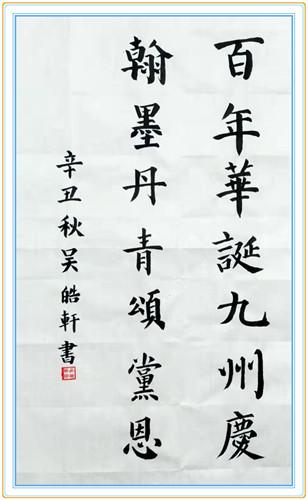 百年華誕九州慶
翰墨丹青頌黨恩
辛丑秋吴皓軒書